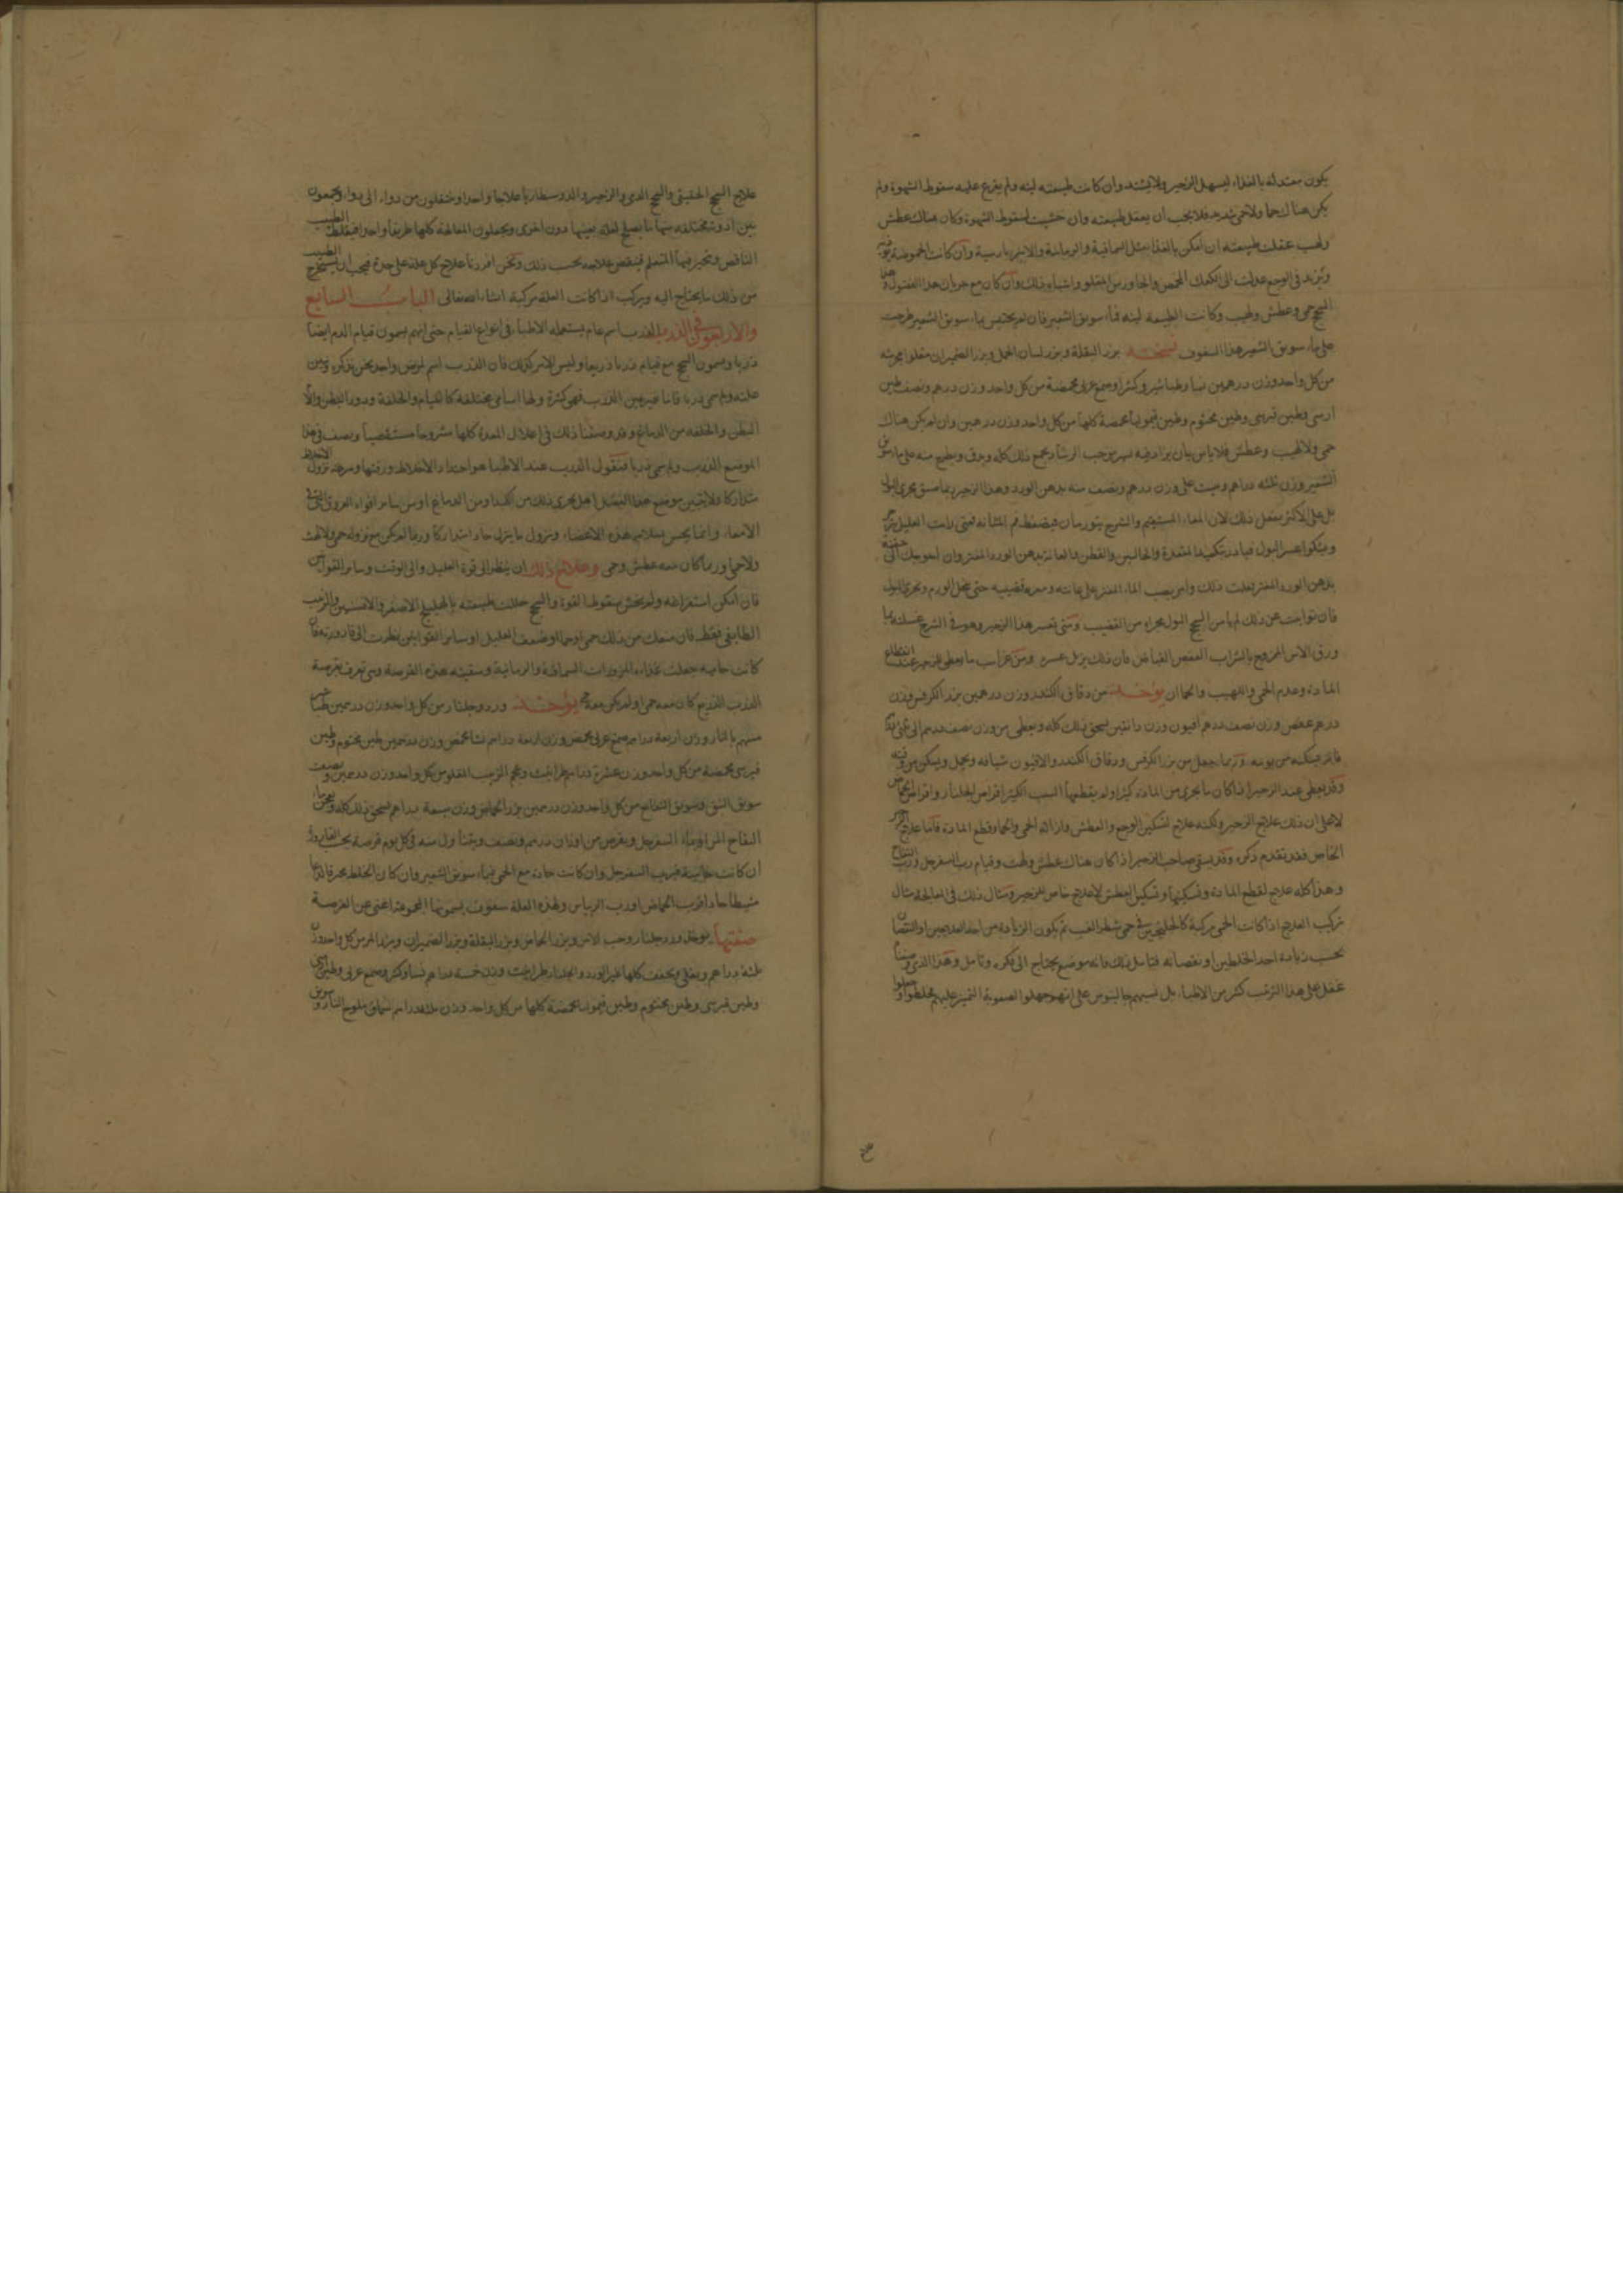 يكون معتدله بالغذاء ليسهل الزحير ولا يشتد وان كانت طبيعته لينه ولم يفزع عليه سقوط الشهوة ولم
يكن هناك حما ولا حمى شديد فلا يجب ان يعقل طبيعته وان خشيت لسقوط الشهوة وكان هناك عطش
ولهيب عقلت طبيعته ان امكن بالغذا مثل السماقية والرمانية والانبرباريسية وان كانت الحموضة
وتزيد في الوجع عدلت الى الكعك المحمص والجاورس المقلو واشباه ذلك وان كان مع جريان هذا الفضول
السحج حمى وعطش ولهيب وكانت الطبيعة لينه فماء سويق الشعير فان لم يحتبس بماء سويق الشعير طرحت
على ماء سويق الشعير هذا السفوف نسخته بزر البقلة وبزر لسان الحمل وبزر الضيمران مقلوا
من كل واحد وزن درهمين نشا وطباشير وكثيرا وصمغ عربي محمصة من كل واحد وزن درهم ونصف طين
ارمني وطين قبرسي وطين مختوم وطين قيموليا محمصة كلها من كل واحد وزن درهمين وان لم يكن هناك
حمى ولا لهيب وعطش فلا باس بان يزاد فيه حب الرشاد يجمع ذلك كله ويدق ويطرح منه على ماء سويق
الشعير وزن ثلثه دراهم وزن درهم ونصف منه بدهن الورد وهذا الزحير ربما ضيق مجرى البول
بل على الاكثر يفعل ذلك لان المعاء المستقيم والشرج يتورمان فيضغط فم المثانه فمتى رايت العليل
ويشكوا عسر البول فبادر بتكميد المقعدة والحالبين والقطن والعانة بدهن الورد المفتر وان احوجك الى حقنة
بدهن الورد المفتر فعلت ذلك وامر بصب الماء المفتر على عانته ومعه قضيبه حتى يحل الورم ويجري البول
فان توانيت عن ذلك لم يامن السحج البول مجراه من القضيب ومتى تعسر هذا الزحير وهو في الشرج غسلته بما
ورق الاس الممزوج بالشراب العفص القباض فان ذلك يزيل عسره ومن غرايب ما يعطى للزحير عند انقطاع
المادة وعدم الحمى واللهيب والحما ان يوخذ من دقاق الكندر وزن درهمين بزر الكرفس وزن
درهم عفص وزن نصف درهم افيون وزن دانقين يسحق ذلك كله ويعطى من وزن نصف درهم الى
فانه يسكنه من يومه وربما جعل من بزر الكرفس ودقاق الكندر والافيون شيافه ويحمل ويسكن من
وقد يعطى عند الزحير اذا كان ما يجري من المادة كثيرا ولم يقطعها السبب الكثير اقراص الجلنار واقراص الحماض
لا على ان ذلك علاج الزحير ولكنه علاج لتسكين الوجع والعطش وازالة الحمى والحما وقطع المادة فاما علاج الزحير
الخاص فقد تقدم ذكره وقد يسقى صاحب الزحير اذا كان هناك عطش ولهث وقيام رب السفرجل ورب التفاح
وهذا كله علاج لقطع المادة وتسكينها وتسكين العطش لا علاج خاص للزحير ومثال ذلك في المعالجة مثال
تركيب العلاج اذا كانت الحمى مركبة كالخلطين في حمى شطر الغب ثم يكون الزيادة من احد العلاجين او النقصان
بحسب زيادة احد الخلطين او نقصانه فتامل ذلك فانه موضع يحتاج الى فكر وتامل وهذا الذي وصفنا
غفل على هذا الترتيب كثر من الاطباء بل نسبهم جالينوس على انهم جهلوا لصعوبة التميز عليهم فخلطوا
علاج السحج الحقيقي والسحج الدمي والزحير والدوسنطاريا علاجا واحدا وينتقلون من دواء الى دواء ويجمعون
بين ادويه مختلفه منها ما يصلح لعلة بعينها دون اخرى ويجعلون المعالجة كلها طريقا واحدا فيغلط الطبيب
الناقص ويتحير فيها المتعلم فينقص علاجه بحسب ذلك ونحن افردنا علاج كل علة على حدة فيجب ان يستخرج الطبيب
من ذلك ما يحتاج اليه ويركب اذا كانت العلة مركبة انشاء الله تعالى الباب السابع
والاربعون في الذرب الذرب اسم عام يستعمله الاطباء في انواع القيام حتى انهم يسمون قيام الدم ايضا
ذربا ويسمون السحج مع قيام ذربا ذريعا وليس الامر كذلك فان الذرب اسم لمرض واحد نحن نذكره ونبين
علته ولم سمي ذربا فاما غير هن الذرب فهي كثيرة ولها اسامي مختلفة كالقيام والخلفة ودور البطن
البطن والخلفه من الدماغ وقد وصفنا ذلك في اعلال المعدة كلها مشروحا مستقصيا ونصف في هذا
الموضع الذرب ولم سمي ذربا فنقول الذرب عند الاطباء هو احتداد الاخلاط ورقتها وسرعة نزول الاخلاط
متداركا ولا يتبين موضع هذا الفضل اهل يجري ذلك من الكبد او من الدماغ او من ساير افواه العروق التي في
الامعاء وانما يحس بسلامه هذه الاعضاء ونزول ما ينزل حاد متداركا وربما لم يكن مع نزوله حمى ولا لهث
ولا حما وربما كان معه عطش وحمى وعلاج ذلك ان ينظر الى قوة العليل والى الوقت وساير القوانين
فان امكن استفراغه ولم يخش سقوط القوة والسحج حللت طبيعته بالهليلج الاصفر والافسنتين والزبيب
الطايفي فقط فان منعك من ذلك حمى او حما او ضعف العليل او ساير القوانين نظرت الى قارورته فان
كانت حاميه جعلت غذاءه المزورات السماقية والرمانية وسقيته هذه القرصة وهي تعرف بقرصة
الذرب القديم كان معه حمى او لم يكن معه يوخذ ورد وجلنار من كل واحد وزن درهمين
بالنار وزن اربعة دراهم صمغ عربي محمص وزن اربعة دراهم نشا محمص وزن درهمين طين مختوم وطين
قبرسي محمصة من كل واحد وزن عشرة دراهم طراثيث وعجم الزبيب المقلو من كل واحد وزن درهمين ونصف
سويق النبق وسويق التفاح من كل واحد وزن درهمين بزر الحماض وزن سبعة دراهم يسحق ذلك كله ويعجن بماء
التفاح المز او بماء السفرجل ويقرص من اوزان درهم ونصف ويتناول منه في كل يوم قرصة بحسب القارورة
ان كانت فبرب السفرجل وان كانت حادة مع الحمى فبماء سويق الشعير وان كان الخلط محرقا
حادا فرب الحماض او رب الريباس ولهذه العلة سفوف يسمونها المجموعة اغنى عن القرصة
صفتها يوخذ ورد وجلنار وحب الاس وبزر الحماض وبزر البقلة وبزر الضيمران وبزر المر من كل واحد وزن
ثلثة دراهم ويقلى ويخفف كلها غير الورد والجلنار طراثيث وزن خمسة دراهم نشا وكثيرا وصمغ عربي وطين ارمني
وطين قبرسي وطين مختوم وطين قيموليا محمصة كلها من كل واحد وزن ثلثة دراهم سماق ملوح النار وسويق